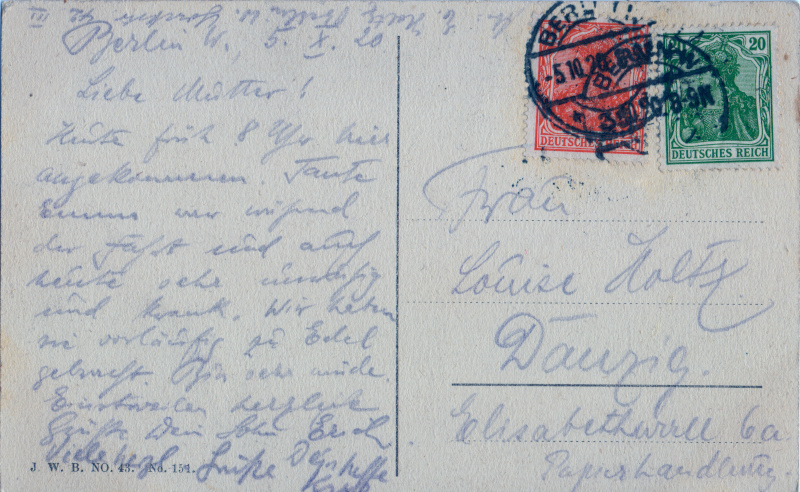 Berlin W., 5. X. 20
Liebe Mutter!
Heute früh 8 Uhr hier
angekommen. Tante
Emma war während
der Fahrt und auch
heute sehr unruhig
und krank. Wir haben
sie vorläufig zu Edel
gebracht. Bin sehr müde.
Einstweilen herzlich
Grüße Dein Sohn Erich
Viele herzl. Grüße Dein
J. W. B. NO. 43. No. 151.
BERLIN W
-5.10.20
8-9N
DEUTSCHES REICH
20
DEUTSCHES REICH
Frau
Louise Holtz
Danzig.
Elisabethwall 6a
Papierhandlung.